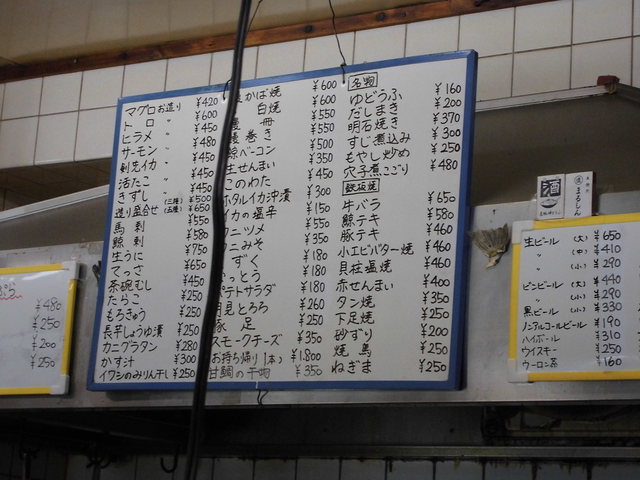 マグロお造り ¥420
トロ 〃 ¥600
ヒラメ 〃 ¥450
サーモン 〃 ¥480
剣先イカ 〃 ¥450
活たこ 〃 ¥450
きずし 〃 ¥450
造り盛合せ (三種) ¥500 (五種) ¥650
馬刺 ¥550
鯨刺 ¥580
生うに ¥750
てっさ ¥650
茶碗むし ¥450
たらこ ¥250
もろきゅう ¥250
長芋しょうゆ漬 ¥250
カニグラタン ¥280
かす汁 ¥300
イワシのみりん干し ¥250
かば焼 ¥600
白焼 ¥600
¥550
巻き ¥550
ベーコン ¥500
生せんまい ¥350
このわた ¥450
ホタルイカ沖漬 ¥300
イカの塩辛 ¥150
カニツメ ¥550
カニみそ ¥350
ずく ¥180
っとう ¥180
ポテトサラダ ¥180
月見とろろ ¥260
豚足 ¥250
スモークチーズ ¥350
お持ち帰り(本) ¥1,800
甘鯛の干物 ¥350
名物
ゆどうふ ¥160
だしまき ¥200
明石焼き ¥370
すじ煮込み ¥300
もやし炒め ¥250
穴子煮こごり ¥480
鉄板焼
牛バラ ¥650
鯨テキ ¥580
豚テキ ¥460
小エビバター焼 ¥460
貝柱塩焼 ¥460
赤せんまい ¥400
タン焼 ¥350
下足焼 ¥250
砂ずり ¥200
焼鳥 ¥250
ねぎま ¥250
¥480
¥250
¥200
¥250
酒
まるしん
生ビール (大) ¥650
〃 (中) ¥410
〃 (小) ¥290
ビンビール (大) ¥440
〃 (小) ¥290
黒ビール (小) ¥330
ノンアルコールビール ¥190
ハイボール ¥310
ウイスキー ¥250
ウーロン茶 ¥160